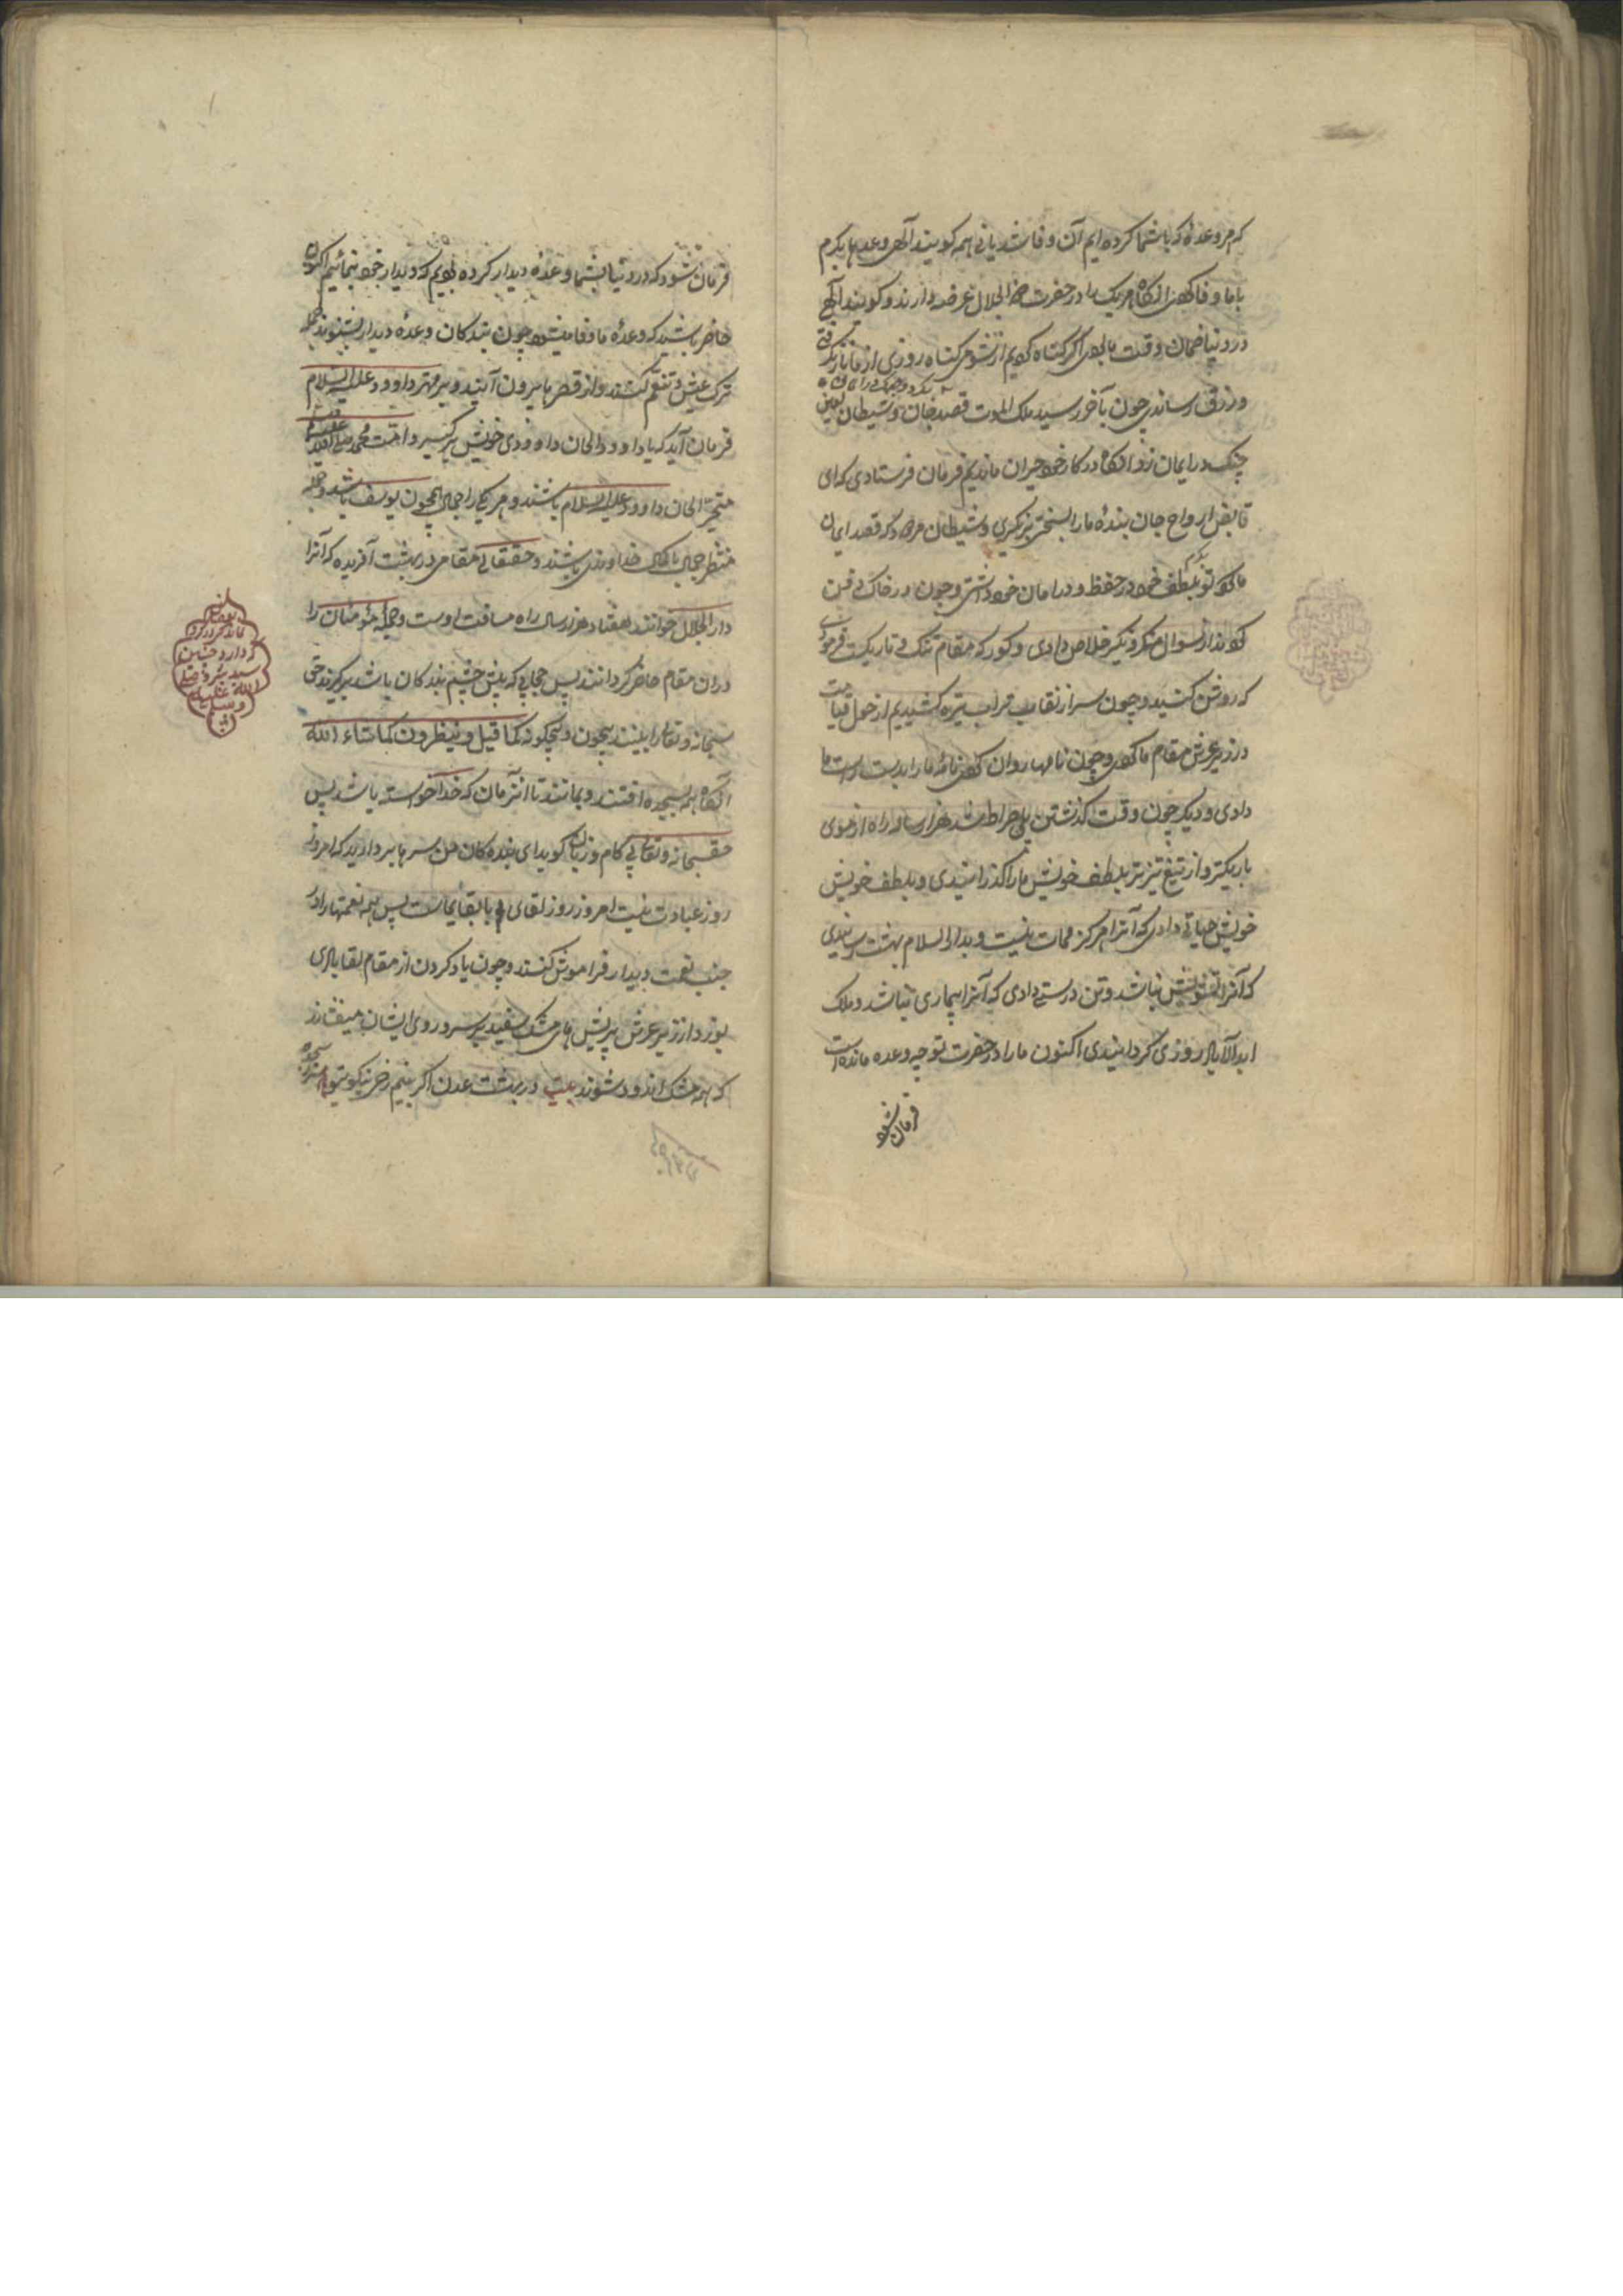 که هر وعدهٔ که باشما کرده ایم آن وفا شد یا نی همه کویند الهی وعدها بکرم
باما وفا کردی انکاه هر یک را در حضرت ذو الجلال عرضه دارند و کویند الهی
در دنیا ضمان وقت ما بودی اکر کناه کردیم از شومی کناه روزی از ما باز نکرفتی
ورزق رساندی چون بآخر رسید ملک الموت قصد جان و شیطان لعین
چنک در ایمان زد انکاه در کار خود حیران ماندیم فرمان فرستادی که ای
قابض ارواح جان بندهٔ ما را بسختی نکیری و شیطان مردود که قصد ایمان
ما کرد تو بلطف خود در حفظ و در امان خود داشتی و چون در خاک دفن
کردند از سوال منکر و نکیر خلاص دادی و کور که مقام تنک و تاریکست فرمودی
که روشن کنید و چون سر از نقاب تراب تیره کشیدیم از هول قیامت
در زیر عرش مقام ما کردی و چون نامها روان کردی نامهٔ ما را بدست راست ما
دادی و دیک چون وقت کذشتن پل صراط شد هزار ساله راه از موی
باریکتر و از تیغ تیزتر بلطف خویش ما را کذرانیدی و بلطف خویش
خویش حیاتی دادی که آنرا هرکز ممات نیست و بدار السلام بهشت رسانیدی
که آنرا تشویش نباشد و تن درستی دادی که آنرا بیماری نباشد و ملک
ابد الآباد روزی کردانیدی اکنون ما را در حضرت تو چه وعده مانده است
فرمان شود
فرمان شود که در دنیا بشما وعدهٔ دیدار کرده بودیم که دیدار خود بنمائیم اکنون
حاضر باشید که وعدهٔ ما وفا میشود چون بندکان وعدهٔ دیدار بشنوند جمله
ترک عیش و تنعم کنند و از قصرها بیرون آیند و بر مهتر داوود علیه السلام
فرمان آید که یا داوود الحان داوودی خویش برکیر و امت محمد
متحیر الحان داوود علیه السلام باشند و هر یکی را جمال همچون یوسف باشد و جمله
منتظر جمال با کمال خداوندی باشند و حقتعالی مقامی در بهشت آفریده که آنرا
دار الجلال خوانند هفتاد هزار سال راه مسافت اوست و جملهٔ مؤمنان را
دران مقام حاضر کردانند پس حجابی که پیش چشم بندکان باشد برکیرند حق
سبحانه وتعالی را ببینند بیچون و بیچکونه کما قیل و ینظرون کما شاء الله
انکاه همه بسجده افتند و بمانند تا انزمان که خدا خواسته باشد پس
حق سبحانه وتعالی بی کام و زبان کوید ای بندکان من سرها بردارید که امروز
روز عبادت نیست امروز روز لقای با بقای ماست پس همه نعمتها را در
جنب نعمت دیدار فراموش کنند و چون یاد کردن از مقام لقا بادی
بوزد از زیر عرش بر تپش های مشک سفید بر سر و روی ایشان میفشاند
که همه مشک اندود شوند بیت در بهشت عدن اکر بینم رخ نیکوی تو